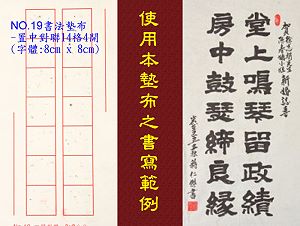 NO.19書法墊布
-置中對聯14格4開
(字體:8cm x 8cm)
使用本墊布之書寫範例
堂上鳴琴留政績
房中鼓瑟締良緣
新婚誌喜